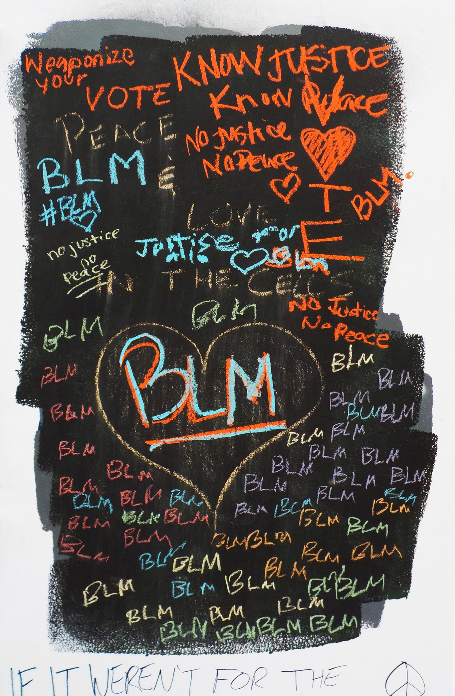 Weaponize
your
VOTE
KNOW JUSTICE
Know Peace
PEACE
No Justice
No Peace
BLM
&
#BLM
VOTE
BLM
LOVE
no justice
no
peace
Justise
BLM
IN THE CELLS
No Justice
No Peace
BLM
BLM
BLM
BLM
BLM
BLM
BLM BLM
BLM BLM
BLM
BLM BLM BLM
BLM BLM BLM
BLM BLM BLM
BLM BLM BLM BLM
BLM BLM BLM BLM BLM
BLM BLM BLM BLM BLM
BLM BLM BLM BLM
BLM BLM BLM BLM
BLM BLM BLM BLM
BLM BLM BLM BLM BLM
BLM BLM BLM
BLM BLM BLM BLM
IF IT WEREN'T FOR THE